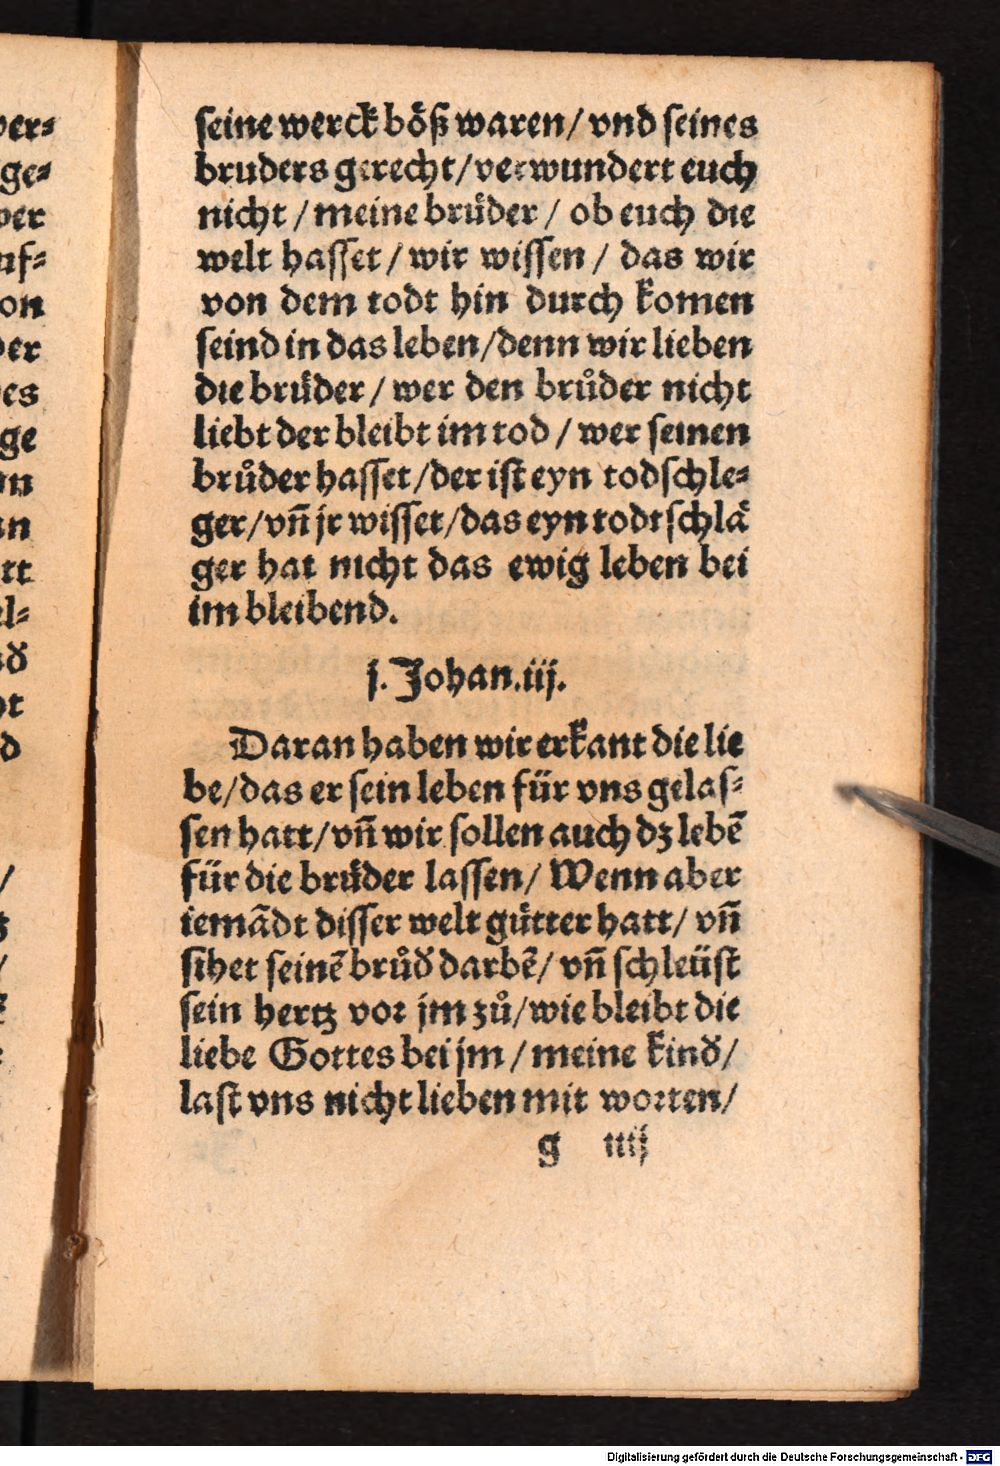 seine werck bőß waren/ vnd seines
bruders gerecht/ verwundert euch
nicht / meine brüder / ob euch die
welt hasset / wir wissen / das wir
von dem todt hin durch komen
seind in das leben/denn wir lieben
die brüder / wer den brůder nicht
liebt der bleibt im tod / wer seinen
brůder hasset /der ist eyn todschle⸗
ger/vñ jr wisset/das eyn todtschlä
ger hat nicht das ewig leben bei
im bleibend.
j. Johan.iij.
Daran haben wir erkant die lie
be/das er sein leben für vns gelas⸗
sen hatt/vñ wir sollen auch dz lebẽ
für die brüder lassen/ Wenn aber
iemãdt disser welt gütter hatt/ vñ
sihet seinẽ brůď darbẽ/ vñ schleüst
sein hertz vor jm zů/wie bleibt die
liebe Gottes bei jm / meine kinď/
last vns nicht lieben mit worten/
g iiij
ver⸗
ge⸗
ver
uf⸗
on
der
es
ge
an
tt
el⸗
Digitalisierung gefördert durch die Deutsche Forschungsgemeinschaft - DFG